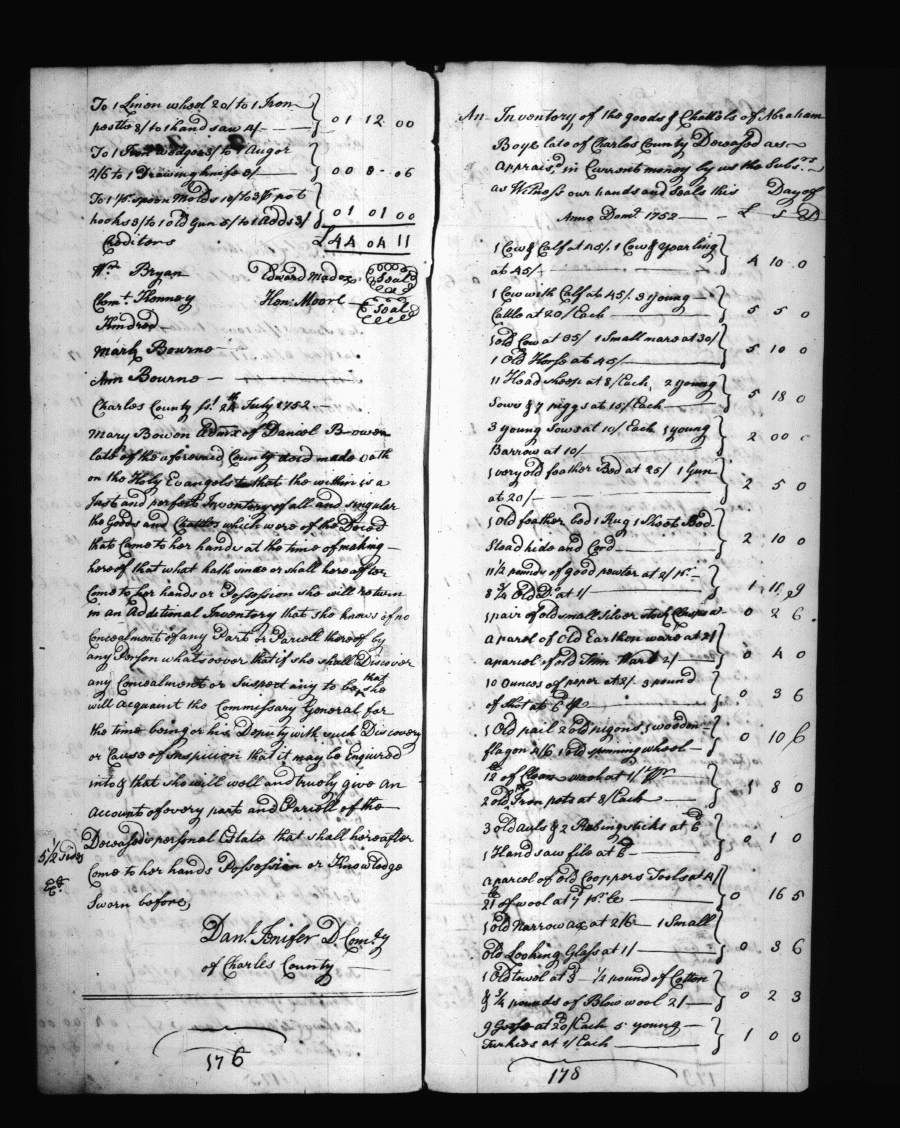 To 1 Linen wheel 20/ to 1 Iron
pestle 8/ to 1 hand saw 4/ 01 12 00
To 1 Iron wedge 3/ to 1 Augor
2/6 to 1 Drawing knife 3/ 00 8 06
To 1 pr. spoon Molds 10/ to 3 pr. pot
hooks 3/ to 1 old Gun 5/ to 1 Adds 3/ 01 01 00
Creditors £44 04 11
Wm. Bryan Edward Madox Seal
Clemt. Kenney Hen: Moore Seal
Kindred
Mark Bourne
Ann Bourne
Charles County ss. 24th July 1752
Mary Bowen Admx of Daniel Bowen
late of the aforesaid County decd made Oath
on the Holy Evangels that the within is a
Just and perfect Inventory of all and singular
the Goods and Chattles which were of the Deced
that Came to her hands at the time of making
hereof that what hath since or shall hereafter
Come to her hands or Possession she will return
in an Additional Inventory that she knows of no
Concealment of any Part or Parcell thereof by
any Person whatsoever that if she shall Discover
any Concealment or Suspect any to be that she
will acquaint the Commissary General for
the time being or his Deputy with such Discovery
or Cause of Suspicion that it may be Enquired
into & that she will well and truely give an
account of every part and Parcell of the
Deceased's personal Estate that shall hereafter
Come to her hands Possession or Knowledge
5 1/2 sides
Sworn before,
Danl. Jenifer D. Comry
of Charles County
176
An Inventory of the goods & Chattels of Abraham
Boye late of Charles County Deceased as
Apprais'd in Current money by us the Subsrs
as Witness our hands and Seals this Day of
Anno Domi 1752 £ s D
1 Cow & Calf at 45/. 1 Cow & Yearling
at 45/ 4 10 0
1 Cow with Calf at 45/. 3 young
Cattle at 20/ Each 5 5 0
1 old Cow at 35/ 1 Small mare at 30/
1 Old Horse at 45/ 5 10 0
11 Head sheep at 8/ Each, 2 young
Sows & 7 piggs at 15/ Each 5 18 0
3 young Sows at 10/ Each 1 young
Barrow at 10/ 2 00
1 very old feather Bed at 25/ 1 Gun
at 20/ 2 5 0
1 Old feather bed 1 Rug 1 Sheet Bed
Stead hide and Cord 2 10 0
11 1/2 pounds of good pewter at 2/ pr.
8 3/4 Old Do. at 1/ 1 11 9
1 pair of old small silver Clasps 0 2 6
a parcel of Old Earthen ware at 2/
a parcel of old Tinn Ware 2/ 0 4 0
10 Ounces of peper at 2/. 3 pound
of Shot at 6d 0 3 6
1 Old pail 2 old pigons 1 wooden
flagon 4/6 1 old spinning wheel 0 10 6
12 lb of Clean at 1/
2 old Iron pots at 8/ Each 1 8 0
3 old auls & 2 sticks at 6d
1 Handsaw file at 6d 0 1 0
a parcel of old Coopers Tools at 4/
21 lb of wool at 7d pr. lb 0 16 5
1 old Narrow ax at 2/6 1 Small
Old Looking Glass at 1/ 0 3 6
1 Old towel at 3d 1/2 pound of Cotton
& 3/4 pounds of Blew wool 2/ 0 2 3
9 Geese at 20d/ Each 5 young
Turkies at 1/ Each 1 0 0
178